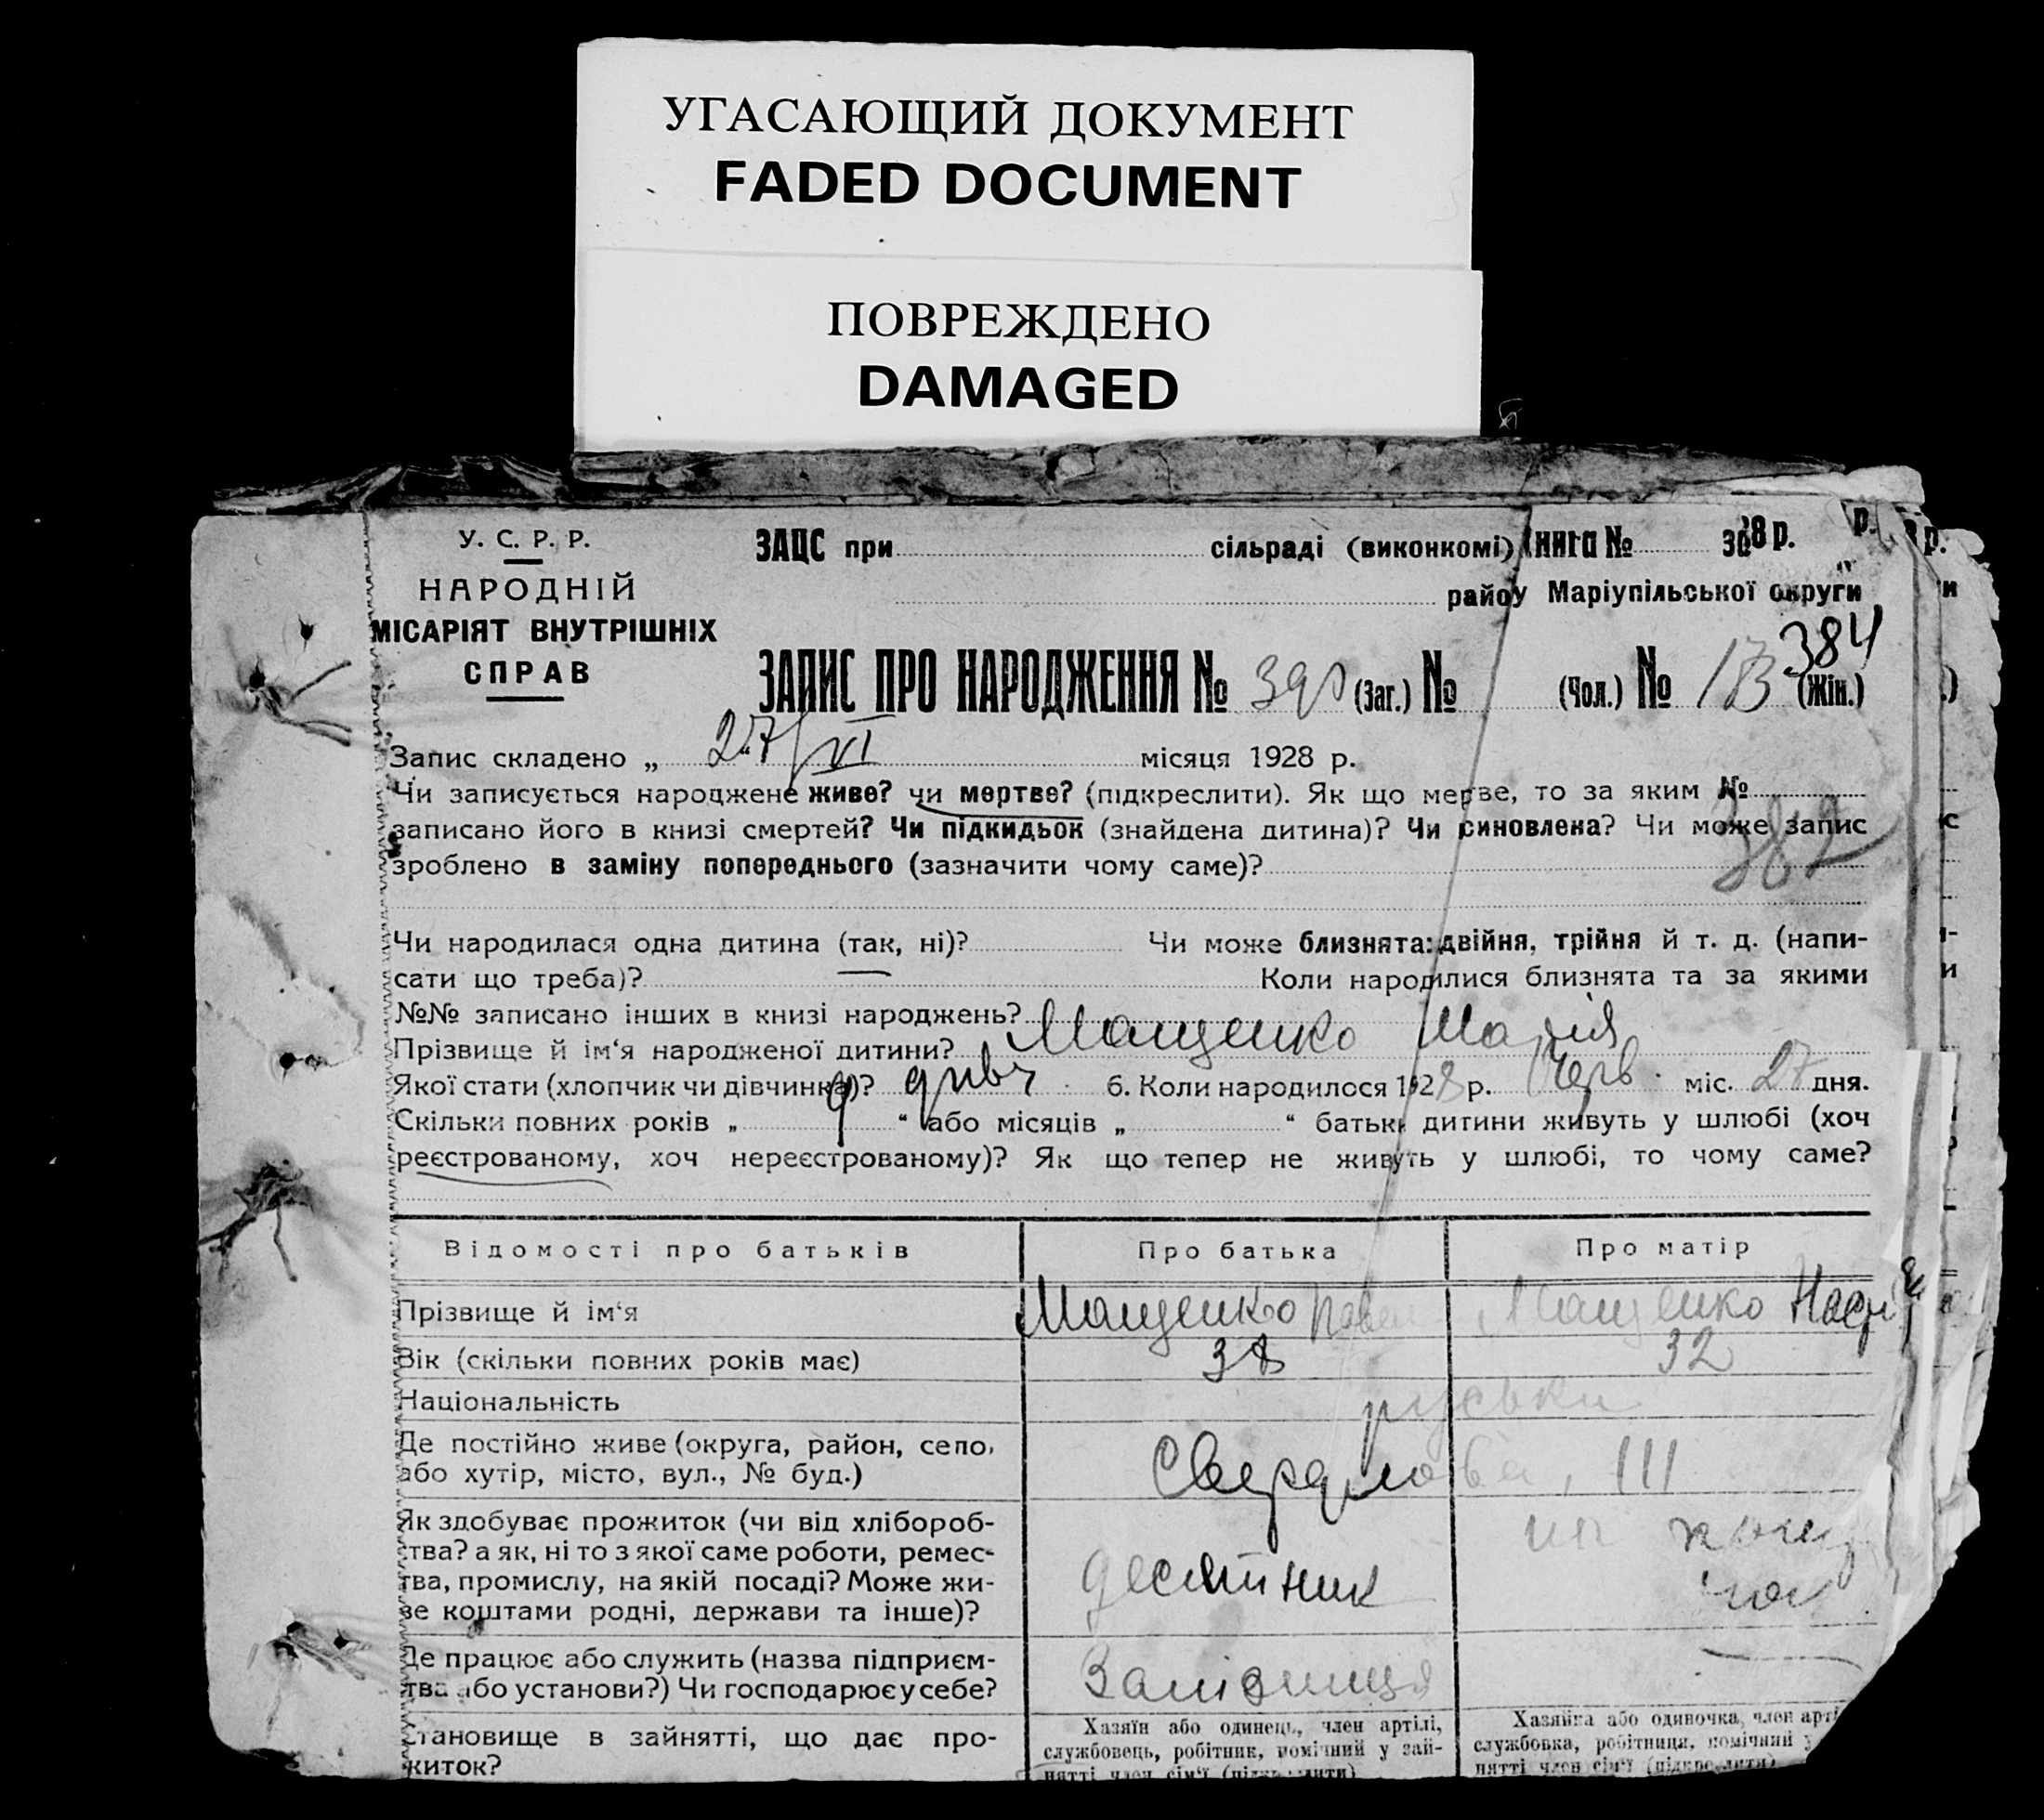 УГАСАЮЩИЙ ДОКУМЕНТ
FADED DOCUMENT
ПОВРЕЖДЕНО
DAMAGED
У. С. Р. Р.
НАРОДНІЙ
МІСАРІЯТ ВНУТРІШНІХ
СПРАВ
ЗАЦС при сільраді (виконкомі) Книга № за 8 р. р. р.
району Маріупільської округи
384
ЗАПИС ПРО НАРОДЖЕННЯ № 390 (Заг.) № (Чол.) № 173 (Жін.)
Запис складено „ 27/VI місяця 1928 р.
Чи записується народжене живе? чи мертве? (підкреслити). Як що мертве, то за яким №
записано його в книзі смертей? Чи підкидьок (знайдена дитина)? Чи синовлена? Чи може запис
382
зроблено в заміну попереднього (зазначити чому саме)?
Чи народилася одна дитина (так, ні)? Чи може близнята: двійня, трійня й т. д. (напи-
сати що треба)? Коли народилися близнята та за якими
№№ записано інших в книзі народжень?
Прізвище й ім‘я народженої дитини? Мащенко Марія
Якої стати (хлопчик чи дівчинка)? дивч 6. Коли народилося 1928 р. Черв. міс. 27 дня.
Скільки повних років „ 9 “ або місяців „ “ батьки дитини живуть у шлюбі (хоч
реєстрованому, хоч нереєстрованому)? Як що тепер не живуть у шлюбі, то чому саме?
Відомості про батьків Про батька Про матір
Прізвище й ім‘я Мащенко Павел Мащенко Наст
Вік (скільки повних років має) 38 32
Національність руськи
Де постійно живе (округа, район, село,
або хутір, місто, вул., № буд.) Свердлова, 111
Як здобуває прожиток (чи від хлібороб-
ства? а як, ні то з якої саме роботи, ремес-
тва, промислу, на якій посаді? Може жи-
ве коштами родні, держави та інше)? десятник
Де працює або служить (назва підприєм-
тва або установи?) Чи господарює у себе? Залізниця
Становище в зайнятті, що дає про-
житок?
Хазяїн або одинець, член артілі,
службовець, робітник, помічний у зай-
нятті член сім‘ї (підкреслити)
Хазяйка або одиночка, член арті
службовка, робітниця, помічний у
нятті член сім‘ї (підкреслити)